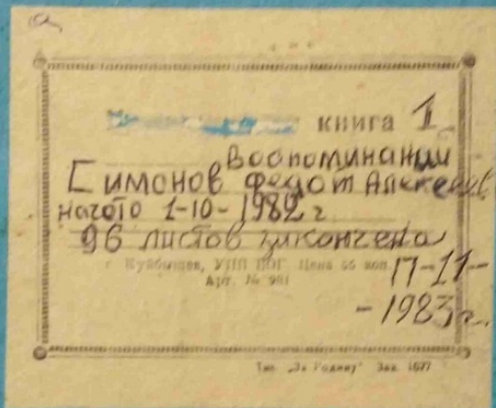 а
книга 1
Воспоминании
Симонов Федот Алексеев
начото 1-10-1982 г
96 листов закончена
г. Куйбышев, УПП ВОГ Цена 55 коп.
17-11-
Арт. № 981
-1983 г.
Тип. „За Родину" Зак. 1677